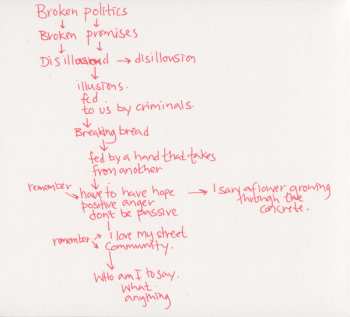 Broken politics
Broken promises
Disillusiond → disillousion
illusions.
fed
to us by criminals.
Breaking bread
fed by a hand that takes
from another
remember
have to have hope → I say a flower growing
positive anger through the
don't be passive concrete.
remember I love my street
Community.
Who am I to say.
What
anything